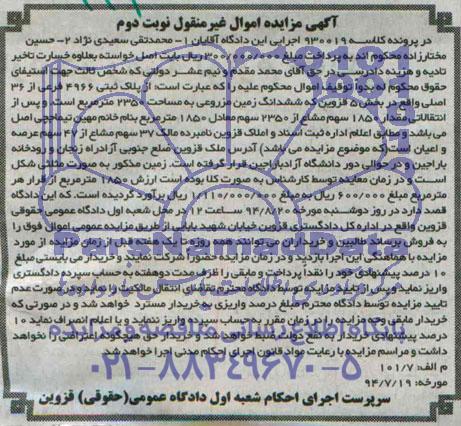 آگهی مزایده اموال غیرمنقول نوبت دوم
در پرونده کلاسه ۹۳۰۰۱۹ اجرایی این دادگاه آقایان ۱- محمدتقی سعیدی نژاد ۲- حسین
مختارزاده محکوم اند به پرداخت مبلغ ۳۰۰/۰۰۰/۰۰۰ ریال بابت اصل خواسته بعلاوه خسارت تاخیر
تادیه و هزینه دادرسی در حق آقای محمد مقدم و نیم عشر دولتی که شخص ثالث جهت استیفای
حقوق محکوم له بدوا توقیف اموال محکوم علیه را که عبارت است از: پلاک ثبتی ۴۹۶۶ فرعی از ۳۶
اصلی واقع در بخش قزوین که ششدانگ زمین مزروعی به مساحت ۲۳۵۰ مترمربع است و پس از
انتقالات مقدار ۱۸۵۰ سهم مشاع از ۲۳۵۰ سهم معادل ۱۸۵۰ مترمربع بنام خانم مهین تیماجچی اصل
می باشد و مطابق اعلام اداره ثبت اسناد و املاک قزوین نامبرده مالک ۳۷ سهم مشاع از ۴۷ سهم عرصه
و اعیان است (که موضوع مزایده می باشد) آدرس ملک قزوین ضلع جنوبی آزادراه زنجان و رودخانه
باراجین و در حوالی دور دانشگاه آزاد باراجین قرار گرفته است. زمین مذکور به صورت مثلثی شکل
است و در زمان معاینه توسط کارشناس به صورت کلا بوده است ارزش ۱۸۵۰ مترمربع از قرار هر
مترمربع مبلغ ۶۰۰/۰۰۰ ریال به مبلغ ۱/۱۱۰/۰۰۰/۰۰۰ ریال برآورد گردیده است. که این دادگاه
قصد دارد در روز دوشنبه مورخه ۹۴/۸/۲۰ ساعت ۱۲ در محل شعبه اول دادگاه عمومی حقوقی
قزوین واقع در اداره کل دادگستری قزوین خیابان شهید بابایی از طریق مزایده عمومی اموال فوق را
به فروش برساند طالبین و خریداران می توانند همه روزه تا یک هفته قبل از زمان مزایده از مورد
مزایده با هماهنگی این اجرا بازدید و در زمان مزایده حضورا شرکت نمایند و خریدار می بایستی مبلغ
۱۰ درصد پیشنهادی خود را نقدا پرداخت و مابقی را ظرف مدت دوهفته به حساب سپرده دادگستری
واریز نماید و پس از تایید مزایده توسط دادگاه محترم تقاضای انتقال مالکیت را نماید و در صورت عدم
تایید مزایده توسط دادگاه محترم مبلغ درصد واریزی به خریدار مسترد خواهد شد و در صورتی که
خریدار مابقی وجه مزایده را در زمان مقرر به حساب سپرده واریز ننماید و یا اعلام انصراف نماید ۱۰
درصد پیشنهادی خریدار به نفع دولت ضبط خواهد شد و خریدار حق هیچگونه اعتراضی را نخواهد
داشت و مراسم مزایده با رعایت مواد قانون اجرای احکام مدنی اجرا خواهد شد
م الف: ۱۰۱/۷
مورخه: ۹۴/۷/۱۹
سرپرست اجرای احکام شعبه اول دادگاه عمومی (حقوقی) قزوین
پایگاه اطلاع رسانی مناقصه و مزایده
۰۲۱-۸۸۳۴۹۶۷۰-۵